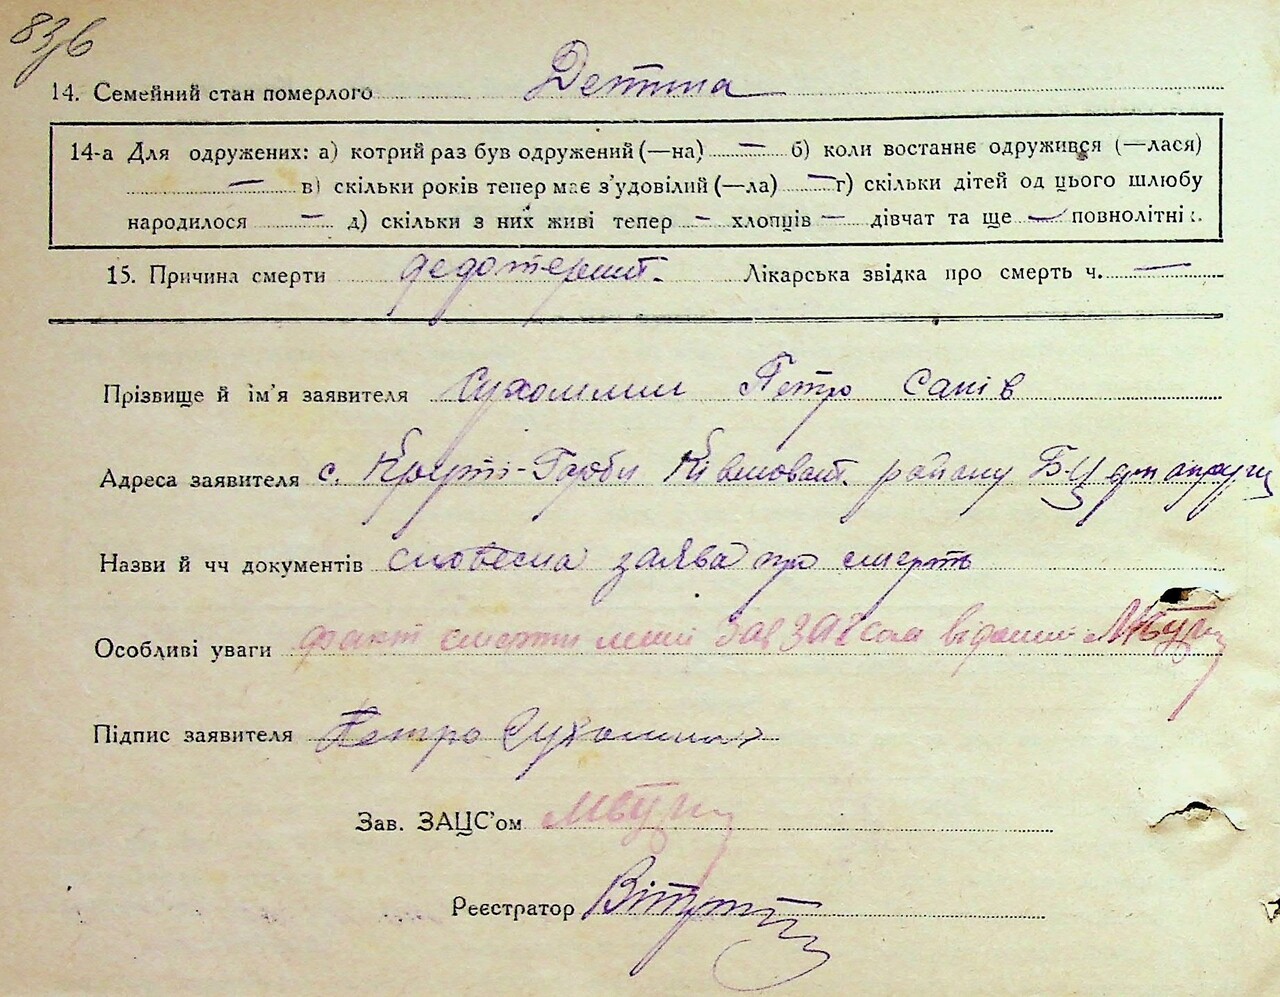 83/6
14. Семейний стан померлого Детина
14-а Для одружених: а) котрий раз був одружений (—на) — б) коли востаннє одружився (—лася)
— в) скільки років тепер має з'удовілий (—ла) — г) скільки дітей од цього шлюбу
народилося — д) скільки з них живі тепер — хлопців — дівчат та ще — повнолітні:.
15. Причина смерти Лікарська звідка про смерть ч. —
Прізвище й ім'я заявителя Сухомлин Петро Савів
Адреса заявителя с. Круті-Горби району Б-Ц округи
Назви й чч документів словесна заява про смерть
Особливі уваги факт смерти мені зав ЗАГСом відомий
Підпис заявителя Петро Сухомлин
Зав. ЗАЦС'ом
Реєстратор